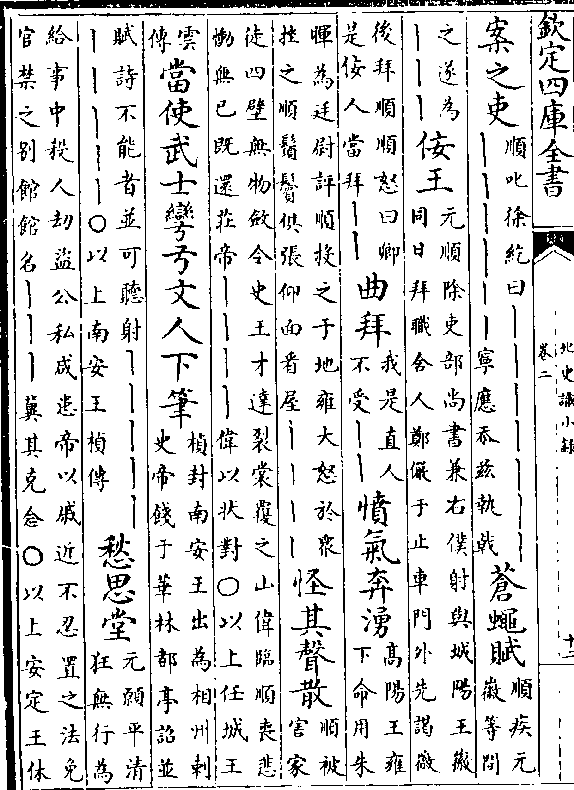 欽定四庫全書
北史識小錄
卷二
十二
案之吏
順叱徐紇曰｜｜｜｜｜｜
｜｜｜｜｜寧應忝茲執戟
蒼蠅賦
順疾元
徽等間
之遂為
｜｜｜
佞王
元順除吏部尚書兼右僕射與城陽王徽
同日拜職舍人鄭儼于止車門外先謁徽
後拜順順怒曰卿
是佞人當拜｜｜
曲拜
我是直人
不受｜｜
憤氣奔湧
高陽王雍
下命用朱
暉為廷尉評順投之于地雍大怒於衆
拄之順鬚鬢俱張仰面看屋｜｜｜｜
怪其聲散
順被
害家
徒四壁無物斂令史王才達裂裳覆之山偉臨順喪悲
慟無已既還莊帝｜｜｜｜偉以狀對○以上任城王
雲
傳
當使武士彎弓文人下筆
楨封南安王出為相州刺
史帝餞于華林都亭詔並
賦詩不能者並可聽射｜｜｜｜｜｜
｜｜｜｜○以上南安王楨傳
愁思堂
元願平清
狂無行為
給事中殺人劫盜公私咸患帝以戚近不忍置之法免
官禁之別館館名｜｜｜冀其克念○以上安定王休